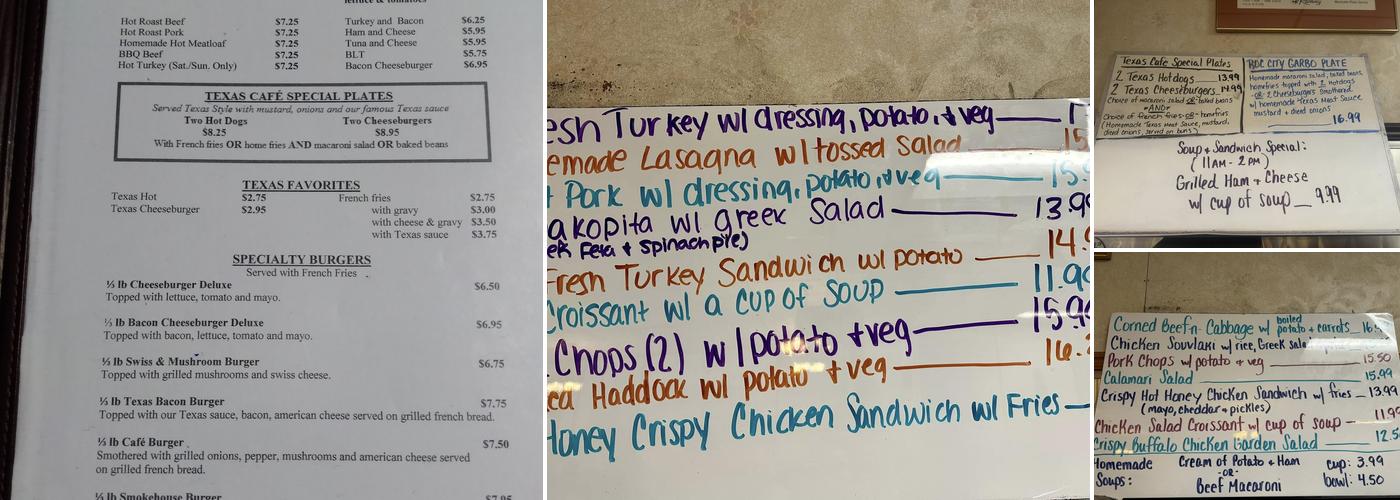 lettuce & tomatoes
Hot Roast Beef $7.25 Turkey and Bacon $6.25
Hot Roast Pork $7.25 Ham and Cheese $5.95
Homemade Hot Meatloaf $7.25 Tuna and Cheese $5.95
BBQ Beef $7.25 BLT $5.75
Hot Turkey (Sat./Sun. Only) $7.25 Bacon Cheeseburger $6.95
TEXAS CAFÉ SPECIAL PLATES
Served Texas Style with mustard, onions and our famous Texas sauce
Two Hot Dogs Two Cheeseburgers
$8.25 $8.95
With French fries OR home fries AND macaroni salad OR baked beans
TEXAS FAVORITES
Texas Hot $2.75 French fries $2.75
Texas Cheeseburger $2.95 with gravy $3.00
with cheese & gravy $3.50
with Texas sauce $3.75
SPECIALTY BURGERS
Served with French Fries
⅓ lb Cheeseburger Deluxe $6.50
Topped with lettuce, tomato and mayo.
⅓ lb Bacon Cheeseburger Deluxe $6.95
Topped with bacon, lettuce, tomato and mayo.
⅓ lb Swiss & Mushroom Burger $6.75
Topped with grilled mushrooms and swiss cheese.
⅓ lb Texas Bacon Burger $7.75
Topped with our Texas sauce, bacon, american cheese served on grilled french bread.
⅓ lb Café Burger $7.50
Smothered with grilled onions, pepper, mushrooms and american cheese served
on grilled french bread.
⅓ lb Smokehouse Burger $7.95
esh Turkey w/ dressing, potato, + veg
emade Lasagna w/ tossed salad 15
t Pork w/ dressing, potato, + veg 15.
akopita w/ greek Salad 13.99
ek Feta + Spinach pie)
Fresh Turkey Sandwich w/ potato 14.
Croissant w/ a cup of soup 11.99
Chops (2) w/ potato + veg 15.99
ed Haddock w/ potato + veg 16.
Honey Crispy Chicken Sandwich w/ Fries
Texas Café Special Plates
2 Texas Hotdogs 13.99
2 Texas Cheeseburgers 14.99
Choice of macaroni salad OR baked beans
-AND-
Choice of french fries -OR- homefries
(Homemade Texas Meat Sauce, mustard,
diced onions, served on buns)
ROC CITY GARBO PLATE
Homemade macaroni salad, baked beans,
homefries topped with 2 Hotdogs
-OR- 2 Cheeseburgers Smothered
w/ homemade Texas Meat Sauce
mustard + diced onions
16.99
Soup + Sandwich Special:
(11AM - 2PM)
Grilled Ham + Cheese
w/ cup of soup 9.99
Corned Beef n Cabbage w/ boiled potato + carrots 16.
Chicken Souvlaki w/ rice, Greek
Pork Chops w/ potato + veg 15.50
Calamari Salad 15.99
Crispy Hot Honey Chicken Sandwich w/ fries 13.99
(mayo, cheddar + pickles)
Chicken Salad Croissant w/ cup of soup 11.99
Crispy Buffalo Chicken Garden Salad 12.5
Homemade Soups: Cream of Potato + Ham cup: 3.99
-OR-
Beef Macaroni bowl: 4.50